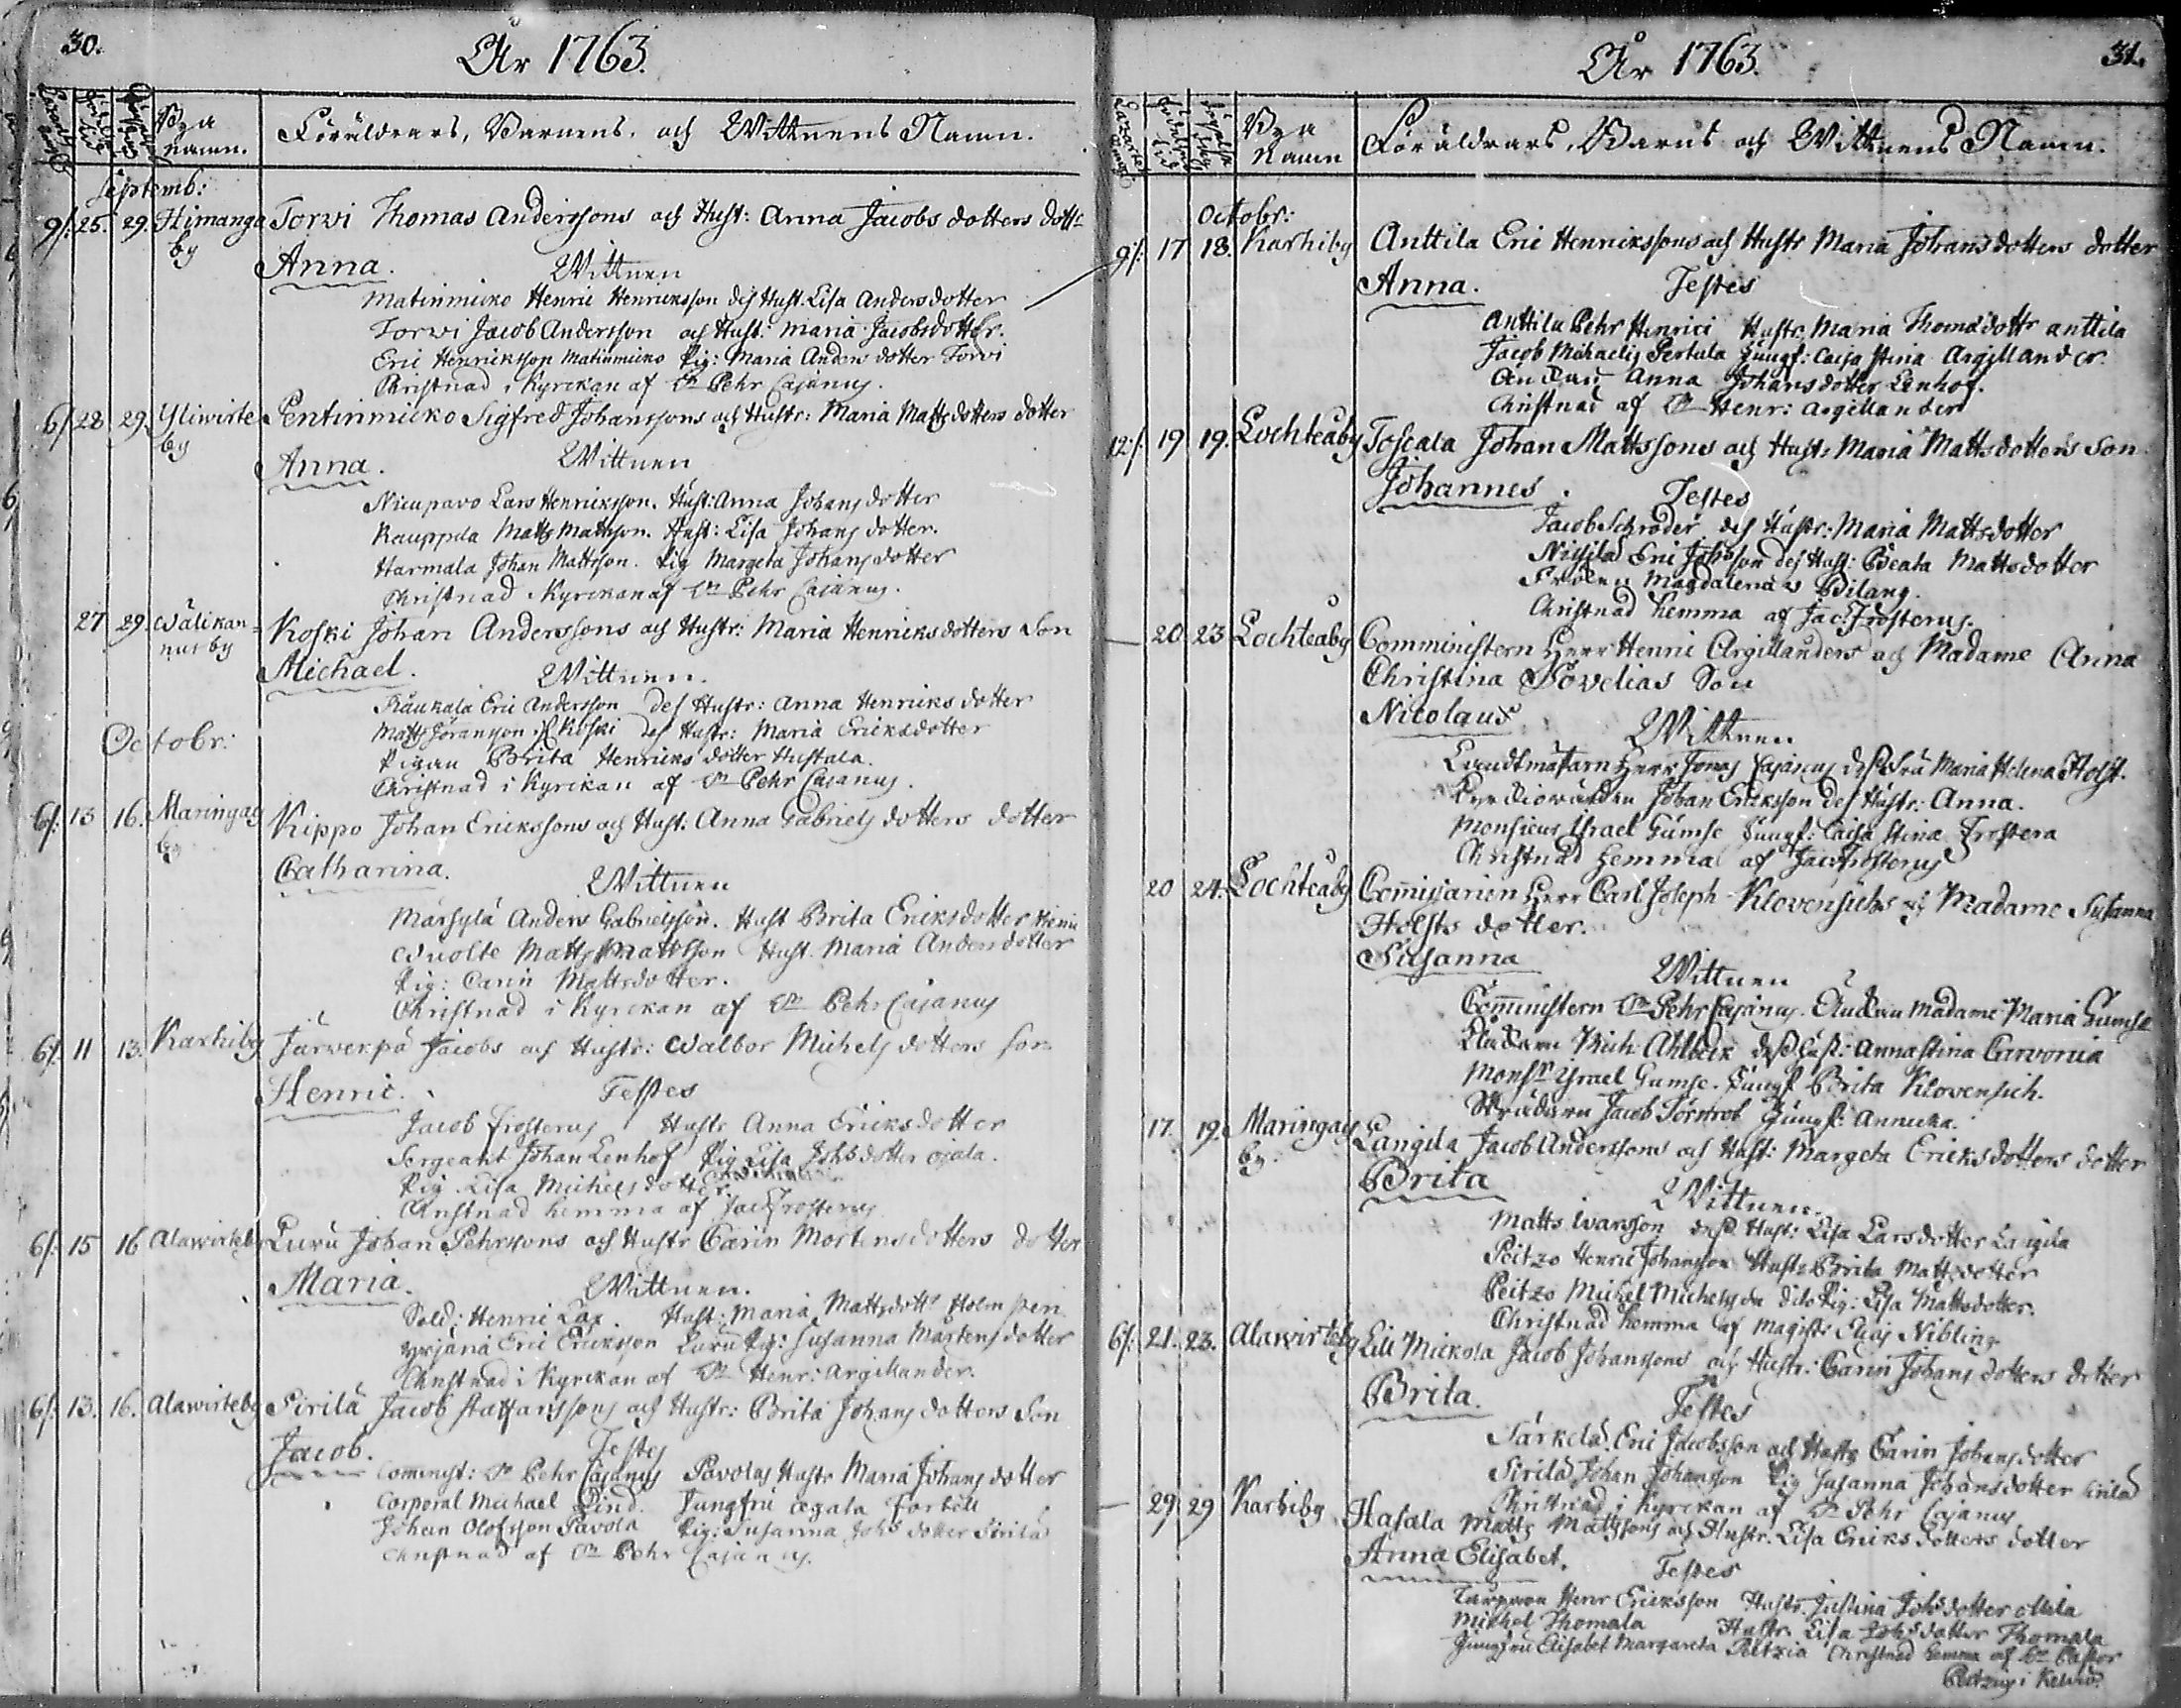 30.
År 1763.
Bya namn.
Föräldrars, Barnens, och Wittnens Namn.
Septemb:
9/: 25. 29. Himanga by Torvi Thomas Anderssons och Hust: Anna Jacobs dotters dott:
Anna. Wittnen
Matinmicko Henric Henricksson des Hust. Lisa Andersdotter
Torvi Jacob Andersson och Hust: Maria Jacobsdotter.
Eric Henricksson Matinmicko Pig: Maria Anders dotter Torvi
Christnad i Kyrckan af Hr Pehr Cajanus.
6/ 28 29. Yliwirte by Pentinmicko Sigfred Johanssons och Hustr: Maria Matts dotters dotter
Anna. Wittnen
Lars Henricksson. Hust: Anna Johans dotter
Kauppila Matts Mattsson. Hust: Lisa Johans dotter.
Harmala Johan Mattsson. Pig Margeta Johans dotter
Christnad i Kyrckan af Hr Pehr Cajanus.
27 29. Wälikannus by Koski Johan Anderssons och Hustr: Maria Henricksdotters Son
Michael. Wittnen.
Eric Andersson des Hustr: Anna Henricks dotter
Matts Göransson Koski des Hustr: Maria Ericksdotter
Pigan Brita Henricks dotter Hustala.
Christnad i Kyrckan af Hr Pehr Cajanus.
Octobr:
6/: 13 16. Maringais by Kippo Johan Erickssons och Hust: Anna Gabriels dotters dotter
Catharina. Wittnen
Märsylä Anders Gabrielsson. Hust Brita Ericksdotter
Wuolte Matts Mattsson Hust. Maria Andersdotter
Pig: Carin Mattsdotter.
Christnad i Kyrckan af Hr Pehr Cajanus
6/. 11 13. Karhiby Järwenpä Jacobs och Hustr: Walbor Michels dotters son
Henric. Testes
Jacob Frosterus Hustr Anna Ericksdotter
Sergeant Johan Lenhof Pig Lisa Johsdotter ojala.
Pig. Lisa Michels dotter.
Christnad hemma af Jac Frosterus
6/: 15 16 Alawirteby Luru Johan Pehrssons och Hustr Carin Mortensdotters dotter
Maria. Wittnen.
Sold: Henric Lax. Hust: Maria Mattsdottr
Yrjänä Eric Ericksson Luru Pig: Susanna Mårtens dotter
Christnad i Kyrckan af Hr Henr: Argillander.
6/: 13. 16. Alawirteby Sirilä Jacob Staffanssons och Hustr: Brita Johans dotters Son
Jacob. Testes
Cominist: Hr Pehr Cajanus Pavolas Hustr Maria Johans dotter
Corporal Michael Lind. Jungfru Agata Forbell
Johan Olofsson Pavola Pig: Susanna Johs dotter Sirilä
Christnad af Hr Pehr Cajanus.
År 1763.
31.
Bya Namn
Föräldrars, Barns och Wittnens Namn.
Octobr:
9/: 17 18. Karhiby Anttila Eric Henrikssons och Hustr Maria Johansdotters dotter
Anna. Testes
Anttila Pehr Henrici Hustr. Maria Thomsdottr Anttila
Jacob Michaelis Pertula Jungf: Caisa Stina Argillander.
Anna Johansdotter Lenhof.
Christnad af Hr Henr: Argillander
12/: 19 19. Lochteåby Toscala Johan Mattssons och Hust: Maria Mattsdotters Son
Johannes. Testes
Jacob Schroder des Hustr: Maria Mattsdotter
Eric Johsson des Hust: Beata Mattsdotter
Magdalena Bilang.
Christnad hemma af Jac: Frosterus.
20 23 Lochteåby Comministern Herr Henric Argillanders och Madame Anna
Christina Sovelias Son
Nicolaus. Wittnen
Landtmätarn Herr Jonas Cajanus dess Fru Maria Helena Holst.
Johan Ericksson des Hustr: Anna.
Monsieur Israel Gumse Jungf: Caisa Stina Frostera
Christnad hemma af Jac Frosterus
20 24. Lochteåby Comissarien Herr Carl Joseph Klovensichs och Madame Susanna
Holsts dotter.
Susanna Wittnen
Comministern Hr Pehr Cajanus. Madame Maria Gumse
Mich Ahlbeck dess Hust: Annastina Carvonia
Monsr Israel Gumse. Jungf Brita Klovensich.
Jacob Jungf: Annicka.
17. 19. Maringais by: Langila Jacob Anderssons och Hust: Margeta Ericksdotters dotter
Brita Wittnen.
Matts Ivarsson dess Hust: Lisa Larsdotter Langila
Peitzo Henric Johansson Hustr Brita Mattsdotter
Peitzo Michel Michelsson dito Pig: Lisa Mattsdotter.
Christnad hemma af Magistr Elias Nibling
6/: 21. 23. Alawirteby Lill Mickola Jacob Johanssons och Hustr: Carin Johans dotters dotter
Brita. Testes
Särkelä Eric Jacobsson och Hustr Carin Johansdotter
Sirilä Johan Johansson Pig Susanna Johansdotter Sirilä
Christnad i Kyrckan af Hr Pehr Cajanus
29 29 Karhiby Hasala Matts Mattssons och Hustr. Lisa Ericks dotters dotter
Anna Elisabet. Testes
Henr Ericksson Hustr. Justina Johsdotter
Michel Thomala Hustr. Lisa Johsdotter Thomala
Jungfru Elisabet Margareta Peitzia Christnad hemma af Hr Pastor